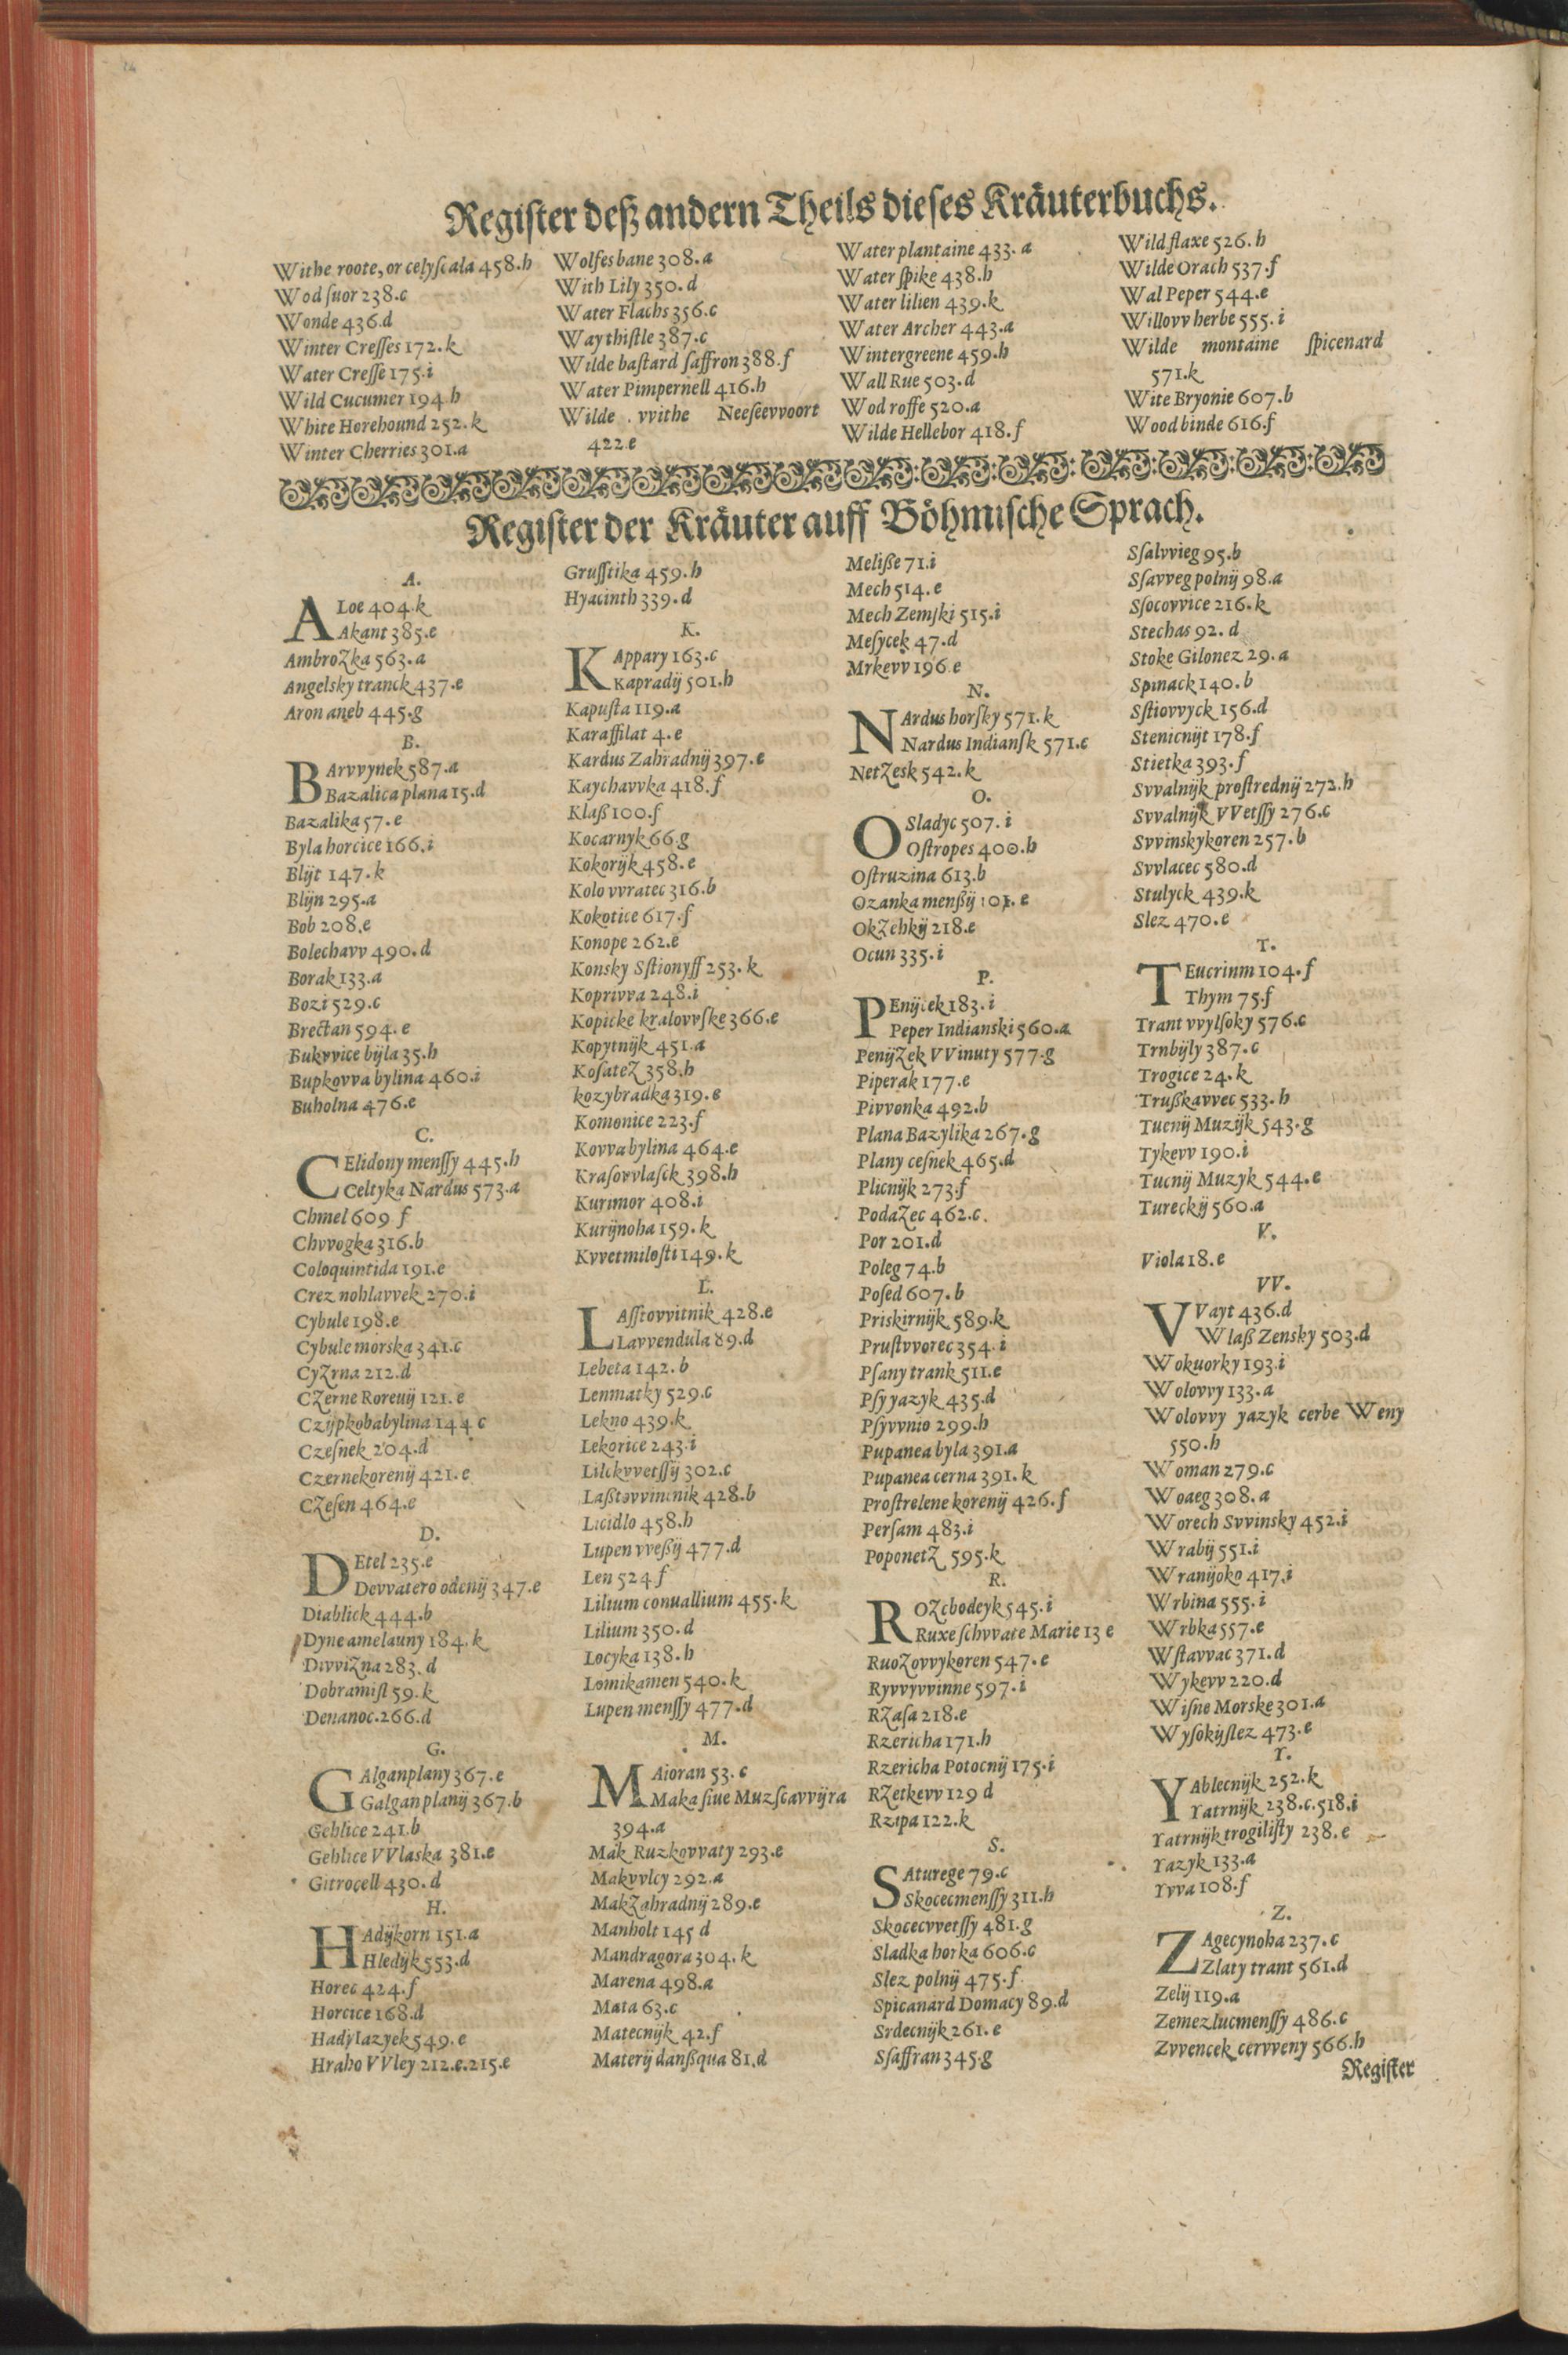 Regiſter deß andern Theils dieſes Kräuterbuchs.
Withe roote, or celyſcala 458.h
Wod ſuor 238.c
Wonde 436.d
Winter Creſſes 172.k
Water Creſſe 175.i
Wild Cucumer 194.h
White Horehound 252.k
Winter Cherries 301.a
Wolfesbane 308.a
With Lily 350.d
Water Flachs 356.c
Way thiſtle 387.c
Wilde baſtard ſaffron 388.f
Water Pimpernell 416.h
Wilde vvithe Neeſeevvoort
422.e
Water plantaine 433.a
Water ſpike 438.h
Water lilien 439.k
Water Archer 443.a
Wintergreene 459.h
Wall Rue 503.d
Wod roffe 520.a
Wilde Hellebor 418.f
Wild flaxe 526.h
Wilde Orach 537.f
Wal Peper 544.e
Willovv herbe 555.i
Wilde montaine ſpicenard
571.k
Wite Bryonie 607.b
Wood binde 616.f
Regiſter der Kräuter auff Böhmiſche Sprach.
A.
ALoe 404.k
Akant 385.e
AmbroZka 563.a
Angelsky tranck 437.e
Aron aneb 445.g
B.
BArvvynek 587.a
Bazalica plana 15.d
Bazalika 57.e
Byla horcice 166.i
Blijt 147.k
Blijn 295.a
Bob 208.e
Bolechavv 490.d
Borak 133.a
Bozi 529.c
Brectan 594.e
Bukvvice bijla 35.h
Bupkovva bylina 460.i
Buholna 476.e
C.
CElidony menſſy 445.h
Celtyka Nardus 573.a
Chmel 609 f
Chvvogka 316.b
Coloquintida 191.e
Crez nohlavvek 270.i
Cybule 198.e
Cybule morska 341.c
CyZrna 212.d
CZerne Roreuij 121.e
Czijpkobabylina 144 c
Czeſnek 204.d
Czernekorenij 421.e
CZeſen 464.e
D.
DEtel 235.e
Devvatero odenij 347.e
Diablick 444.b
Dyne amelauny 184.k
DivviZna 283.d
Dobramiſl 59.k
Denanoc.266.d
G.
GAlganplany 367.e
Galgan planij 367.b
Gehlice 241.b
Gehlice VVlaska 381.e
Gitrocell 430.d
H.
HAdijkorn 151.a
Hledijk 553.d
Horec 424.f
Horcice 168.d
Hadylazyek 549.e
Hraho VVley 212.e.215.e
Gruſſtika 459.h
Hyacinth 339.d
K.
KAppary 163.c
Kapradij 501.h
Kapuſta 119.a
Karaffilat 4.e
Kardus Zahradnij 397.e
Kaychavvka 418.f
Klaß 100.f
Kocarnyk 66.g
Kokorijk 458.e
Kolo vvratec 316.b
Kokotice 617.f
Konope 262.e
Konsky Sſtionyſſ 253.k
Koprivva 248.i
Kopicke kralovvſke 366.e
Kopytnijk 451.a
KoſateZ 358.h
kozybradka 319.e
Komonice 223.f
Kovva bylina 464.e
Kraſovvlaſck 398.h
Kurimor 408.i
Kurijnoha 159.k
Kvvetmiloſti 149.k
L.
LAſſtovvitnik 428.e
Lavvendula 89.d
Lebeta 142.b
Lenmatky 529.c
Lekno 439.k
Lekorice 243.i
Lilckvvetſſij 302.c
Licidlo 458.h
Lupen vveßij 477.d
Len 524 f
Lilium conuallium 455.k
Lilium 350.d
Locyka 138.h
Lomikamen 540.k
Lupen menſſy 477.d
M.
MAioran 53.c
Maka ſiue Muzſcavvijra
394.a
Mak Ruzkovvaty 293.e
Makvvlcy 292.a
MakZahradnij 289.e
Manholt 145 d
Mandragora 304.k
Marena 498.a
Mata 63.c
Matecnijk 42.f
Materij danßqua 81.d
Meliße 71.i
Mech 514.e
Mech Zemſki 515.i
Meſycek 47.d
Mrkevv 196.e
N.
NArdus horſky 571.k
Nardus Indianſk 571.c
NetZesk 542.k
O.
OSladyc 507.i
Oſtropes 400.h
Oſtruzina 613.b
Ozanka menßij 101.e
OkZehkij 218.e
Ocun 335.i
P.
PEnijcek 183.i
Peper Indianski 560.a
PenijZek VVinuty 577.g
Piperak 177.e
Pivvonka 492.b
Plana Bazylika 267.g
Plany ceſnek 465.d
Plicnijk 273.f
PodaZec 462.c.
Por 201.d
Poleg 74.b
Poſed 607.b
Priskirnijk 589.k
Pruſtvvorec 354.i
Pſany trank 511.e
Pſy yazyk 435.d
Pſyvvnio 299.h
Pupanea byla 391.a
Pupanea cerna 391.k
Proſtrelene korenij 426.f
Perſam 483.i
PoponetZ 595.k
R.
ROZchodeyk 545.i
Ruxe ſchvvate Marie 13 e
RuoZovvykoren 547.e
Ryvvyvvinne 597.i
RZaſa 218.e
Rzericha 171.h
Rzericha Potocnij 175.i
RZetkevv 129 d
Rzipa 122.k
S.
SAturege 79.c
Skocecmenſſy 311.h
Skocecvvetſſy 481.g
Sladka horka 606.c
Slez polnij 475.f
Spicanard Domacy 89.d
Srdecnijk 261.e
Sſaffran 345.g
Sſalvvieg 95.b
Sſavveg polnij 98.a
Sſocovvice 216.k
Stechas 92.d
Stoke Gilonez 29.a
Spinack 140.b
Sſtiovvyck 156.d
Stenicnijt 178.f
Stietka 393.f
Svvalnijk proſtrednij 272.h
Svvalnijk VVetſſy 276.c
Svvinskykoren 257.b
Svvlacec 580.d
Stulyck 439.k
Slez 470.e
T.
TEucrinm 104.f
Thym 75.f
Trant vvylſoky 576.c
Trnbijly 387.c
Trogice 24.k
Trußkavvec 533.h
Tucnij Muzijk 543.g
Tykevv 190.i
Tucnij Muzyk 544.e
Tureckij 560.a
V.
Viola 18.e
VV.
VVayt 436.d
Wlaß Zensky 503.d
Wokuorky 193.i
Wolovvy 133.a
Wolovvy yazyk cerbe Weny
550.h
Woman 279.c
Woaeg 308.a
Worech Svvinsky 452.i
Wrabij 551.i
Wranijoko 417.i
Wrbina 555.i
Wrbka 557.e
Wſtavvac 371.d
Wykevv 220.d
Wiſne Morske 301.a
Wyſokijſlez 473.e
Y.
YAblecnijk 252.k
Yatrnijk 238.c.518.i
Yatrnijk trogiliſty 238.e
Yazyk 133.a
Yvva 108.f
Z.
ZAgecynoha 237.c
Zlaty trant 561.d
Zelij 119.a
Zemezlucmenſſy 486.c
Zvvencek cervveny 566.h
Regiſter